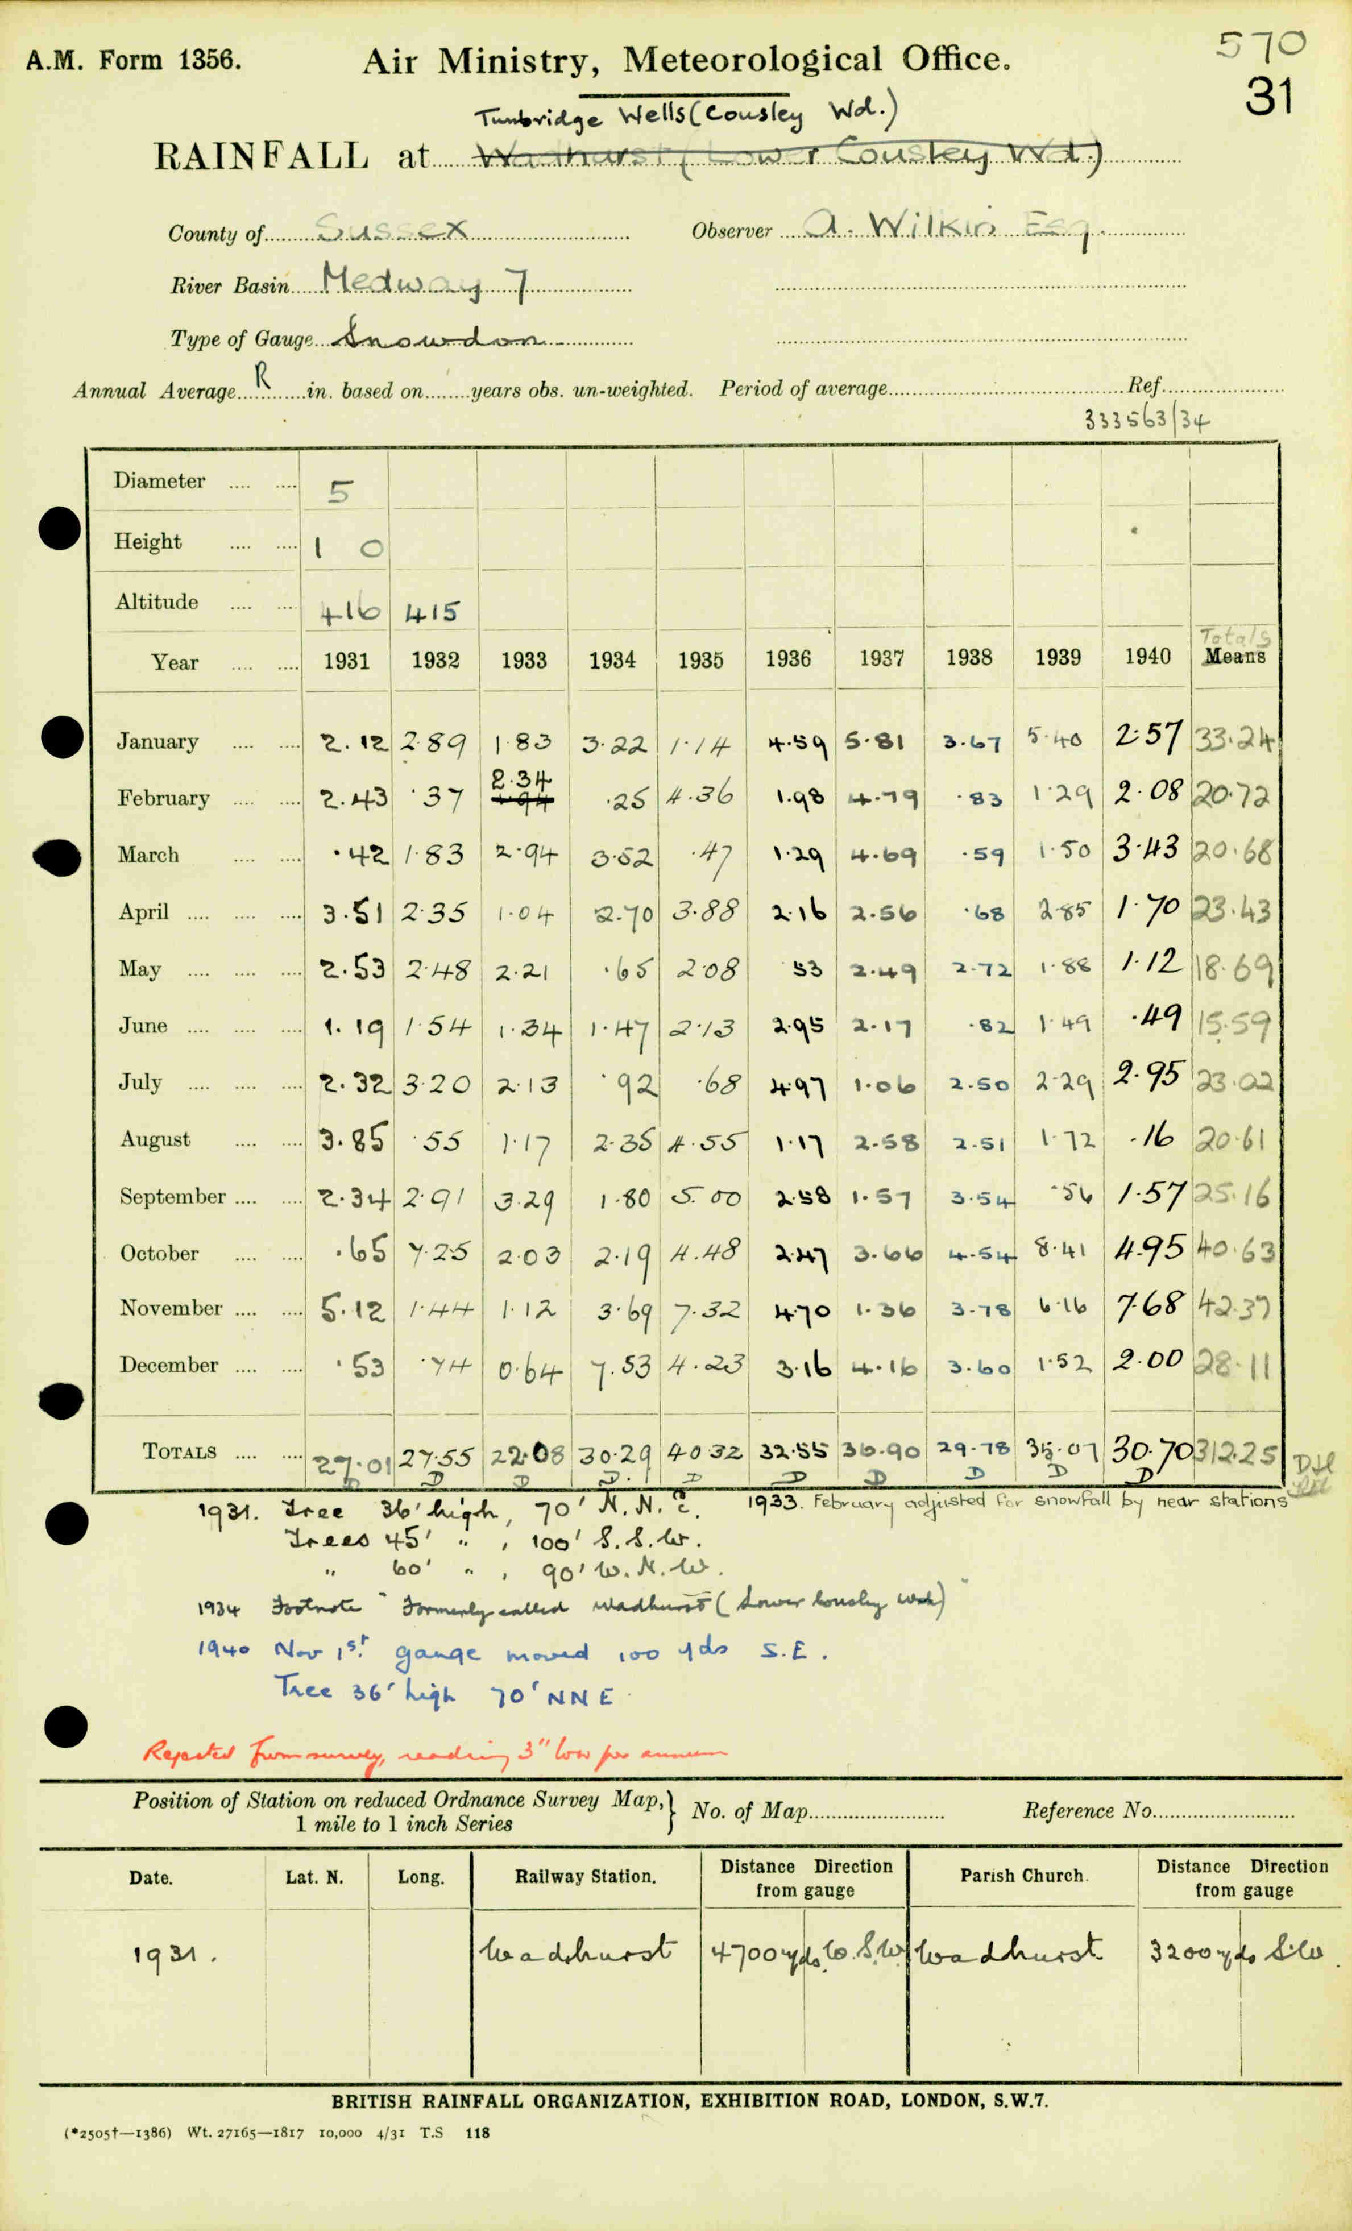 A.M. Form 1356. Air Ministry, Meteorological Office. 570
31
Tunbridge Wells (Cousley Wd.)
RAINFALL at Wadhurst (Lower Cousley Wd.)
County of Sussex Observer A. Wilkin Esq.
River Basin Medway 7
Type of Gauge Snowdon
Annual Average R in. based on years obs. un-weighted. Period of average Ref.
333563/34
Diameter 5
Height 1 0
Altitude 416 415
Totals
Year 1931 1932 1933 1934 1935 1936 1937 1938 1939 1940 Means
January 2.12 2.89 1.83 3.22 1.14 4.59 5.81 3.67 5.40 2.57 33.24
February 2.43 .37 2.34 1.94 .25 4.36 1.98 4.79 .83 1.29 2.08 20.72
March .42 1.83 2.94 3.52 .47 1.29 4.69 .59 1.50 3.43 20.68
April 3.51 2.35 1.04 2.70 3.88 2.16 2.56 .68 2.85 1.70 23.43
May 2.53 2.48 2.21 .65 2.08 53 2.49 2.72 1.88 1.12 18.69
June 1.19 1.54 1.34 1.47 2.13 2.95 2.17 .82 1.49 .49 15.59
July 2.32 3.20 2.13 .92 .68 4.97 1.06 2.50 2.29 2.95 23.02
August 3.85 .55 1.17 2.35 4.55 1.17 2.58 2.51 1.72 .16 20.61
September 2.34 2.91 3.29 1.80 5.00 2.58 1.57 3.54 .56 1.57 25.16
October .65 7.25 2.03 2.19 4.48 2.47 3.66 4.54 8.41 4.95 40.63
November 5.12 1.44 1.12 3.69 7.32 4.70 1.36 3.78 6.16 7.68 42.37
December .53 .74 0.64 7.53 4.23 3.16 4.16 3.60 1.52 2.00 28.11
TOTALS 27.01 27.55 22.08 30.29 40.32 32.55 36.90 29.78 35.07 30.70 312.25
D D D D D D D D D D
1931. Tree 36' high, 70' N.N.E. 1933. February adjusted for snowfall by near stations
Trees 45' " , 100' S.S.W.
" 60' " , 90' W.N.W.
1934 Footnote "Formerly called Wadhurst (Lower Cousley Wd.)"
1940 Nov 1st gauge moved 100 yds S.E.
Tree 36' high 70' NNE
Rejected from survey, reading 3" low per annum
Position of Station on reduced Ordnance Survey Map,} No. of Map Reference No.
1 mile to 1 inch Series
Date. Lat. N. Long. Railway Station. Distance Direction from gauge Parish Church. Distance Direction from gauge
1931. Wadhurst 4700 yds. W.S.W Wadhurst 3200 yds S.W.
BRITISH RAINFALL ORGANIZATION, EXHIBITION ROAD, LONDON, S.W.7.
(*2505†—1386) Wt. 27165—1817 10,000 4/31 T.S 118